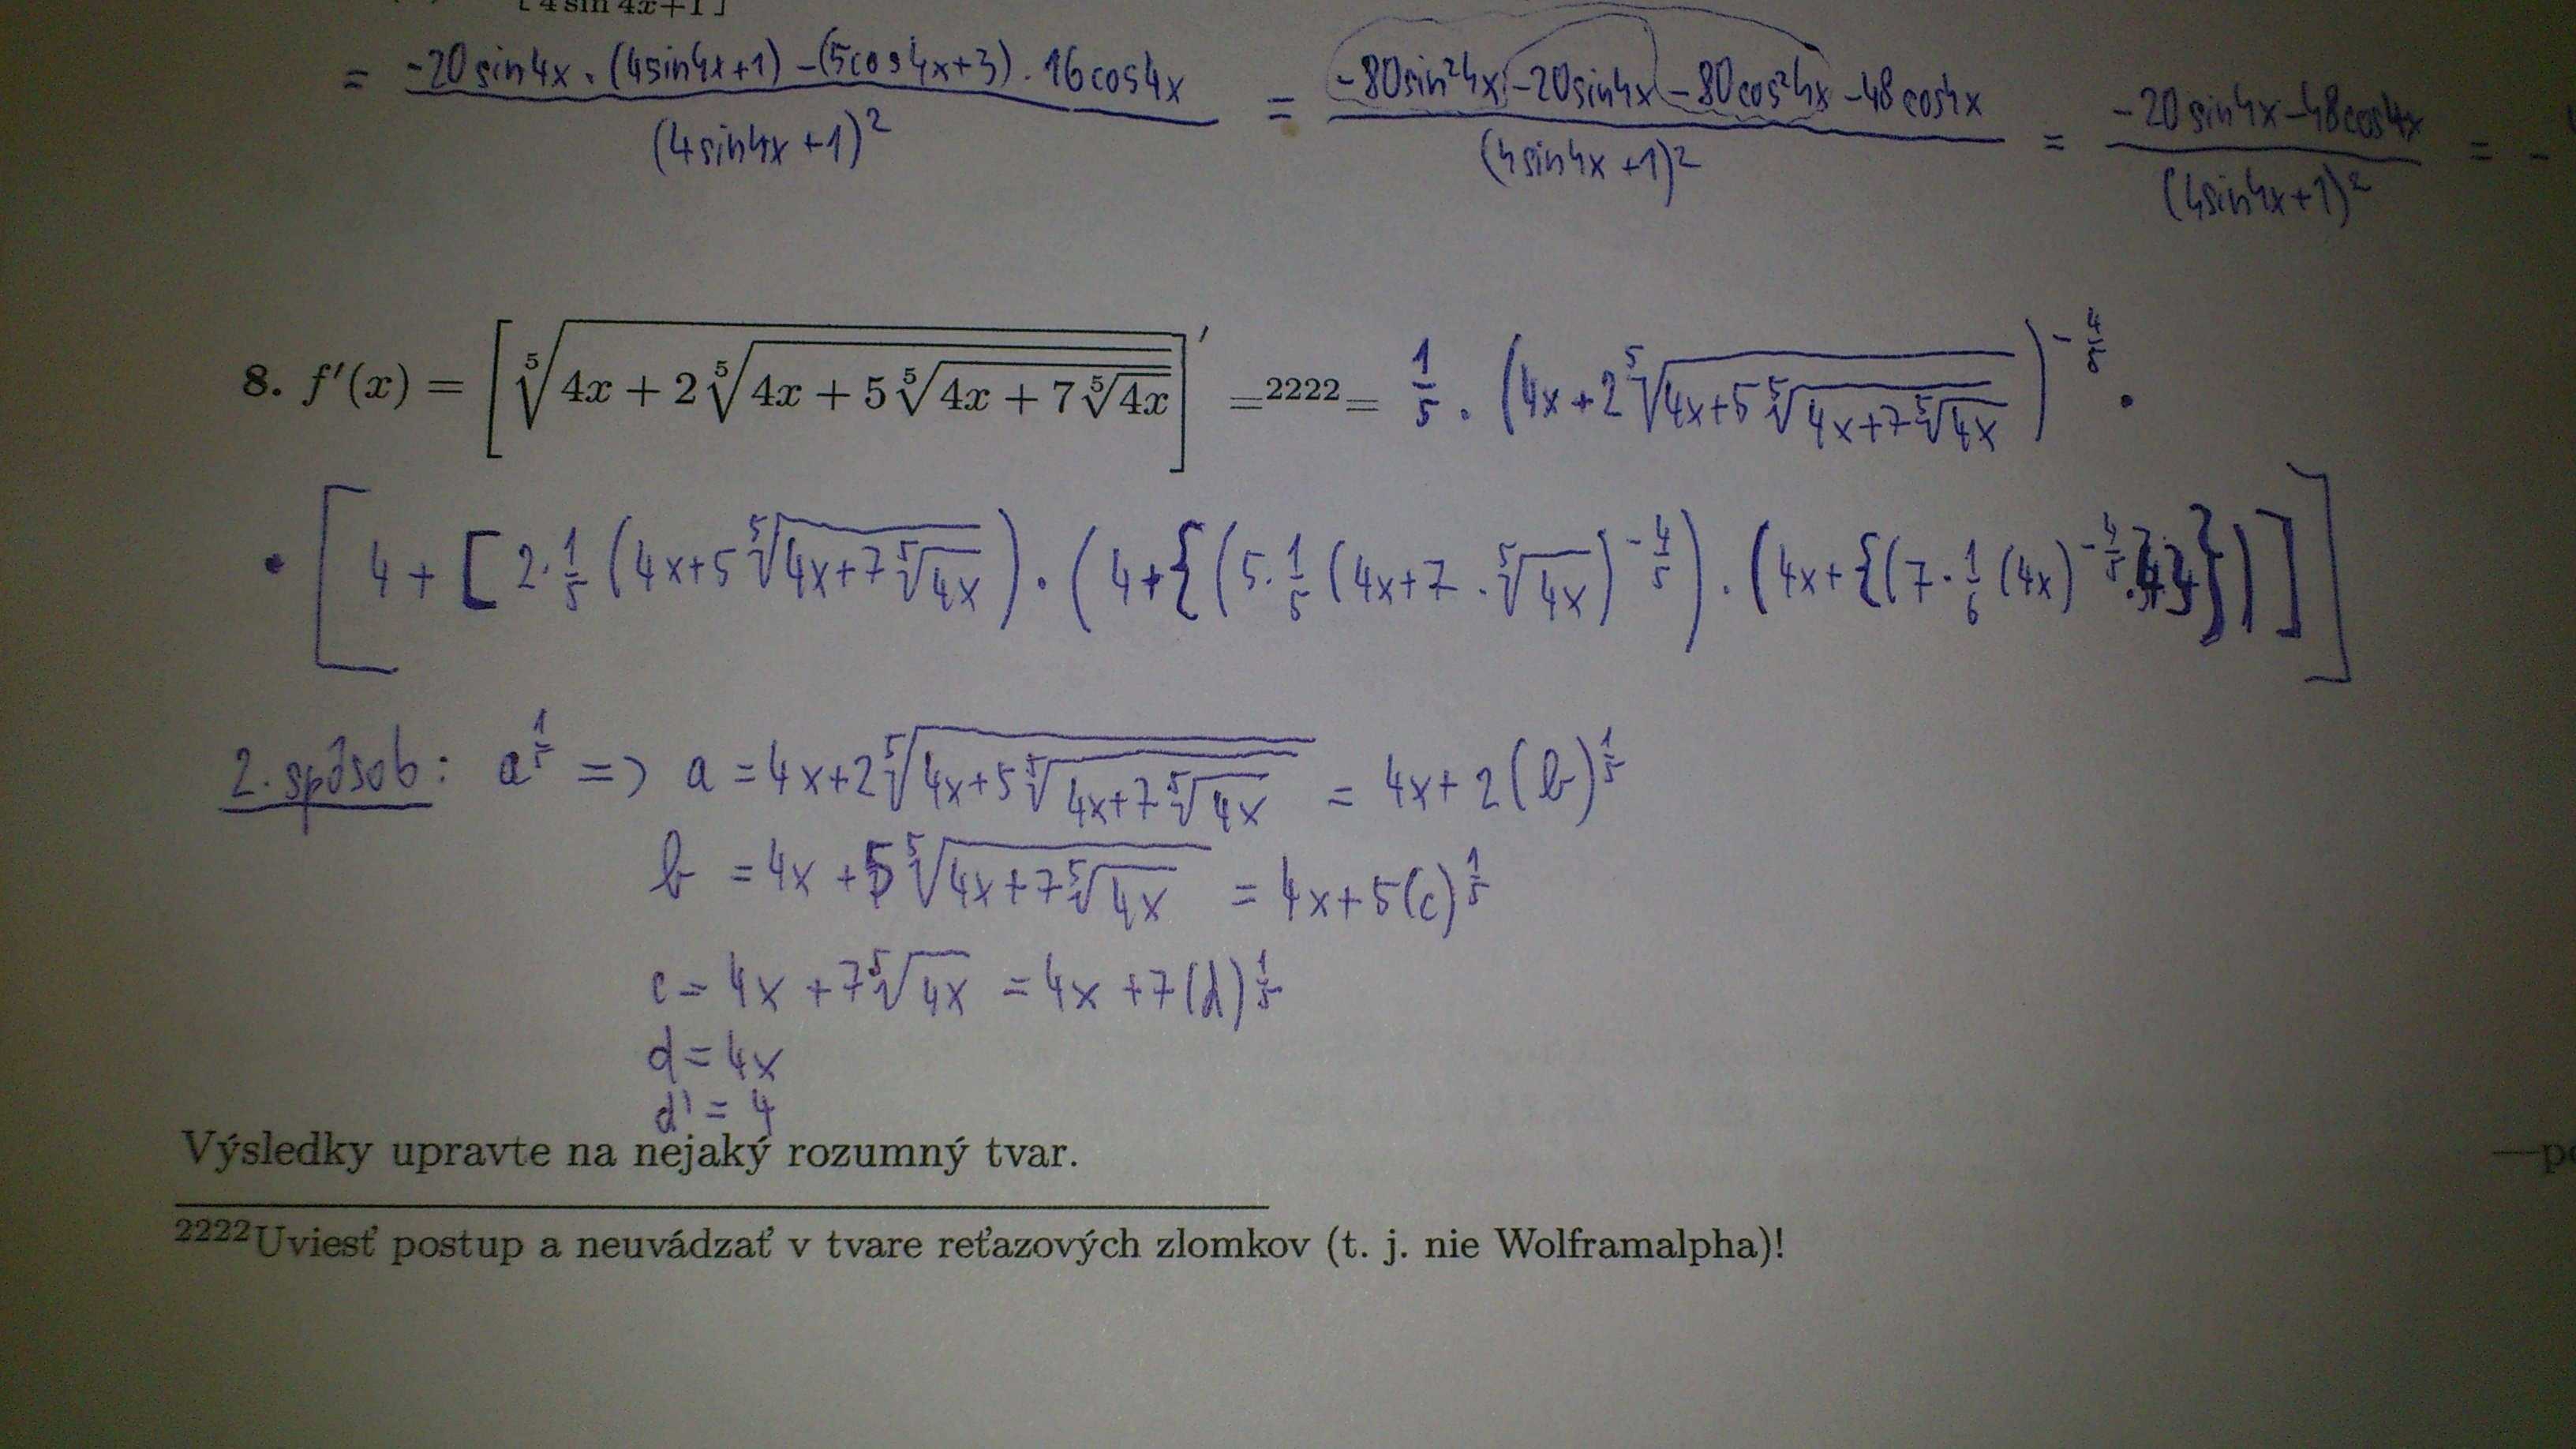 [4 sin 4x+1]
= (-20sin4x · (4sin4x+1) - (5cos4x+3) · 16cos4x) / (4sin4x+1)² = (-80sin²4x - 20sin4x - 80cos²4x - 48cos4x) / (4sin4x+1)² = (-20sin4x - 48cos4x) / (4sin4x+1)² = -
8. f′(x) = [⁵√(4x + 2 ⁵√(4x + 5 ⁵√(4x + 7 ⁵√(4x))))]′ =²²²²= 1/5 · (4x+2 ⁵√(4x+5 ⁵√(4x+7 ⁵√(4x))))^(-4/5) ·
· [4 + [2 · 1/5 (4x+5 ⁵√(4x+7 ⁵√(4x))) · (4+{(5 · 1/5 (4x+7 · ⁵√(4x))^(-4/5)) · (4x+{(7 · 1/6 (4x)^(-4/5) · 4}})]]
2. spôsob: a^(1/5) => a = 4x+2 ⁵√(4x+5 ⁵√(4x+7 ⁵√(4x))) = 4x+2(b)^(1/5)
b = 4x+5 ⁵√(4x+7 ⁵√(4x)) = 4x+5(c)^(1/5)
c = 4x+7 ⁵√(4x) = 4x+7(d)^(1/5)
d = 4x
d' = 4
Výsledky upravte na nejaký rozumný tvar.
²²²²Uviesť postup a neuvádzať v tvare reťazových zlomkov (t. j. nie Wolframalpha)!